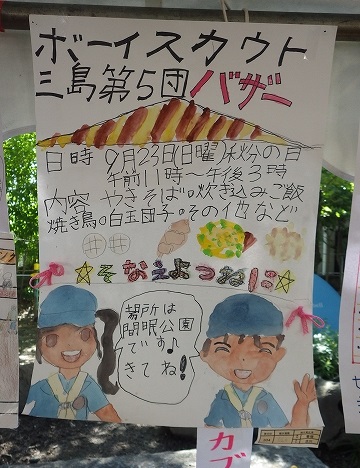 ボーイスカウト
三島第5団バザー
日時 9月23日(日曜)秋分の日
午前11時〜午後3時
内容 やきそば・炊き込みご飯
焼き鳥・白玉団子・その他など
☆そなえよつねに☆
場所は
間眠公園
です♪
きてね!
カブ